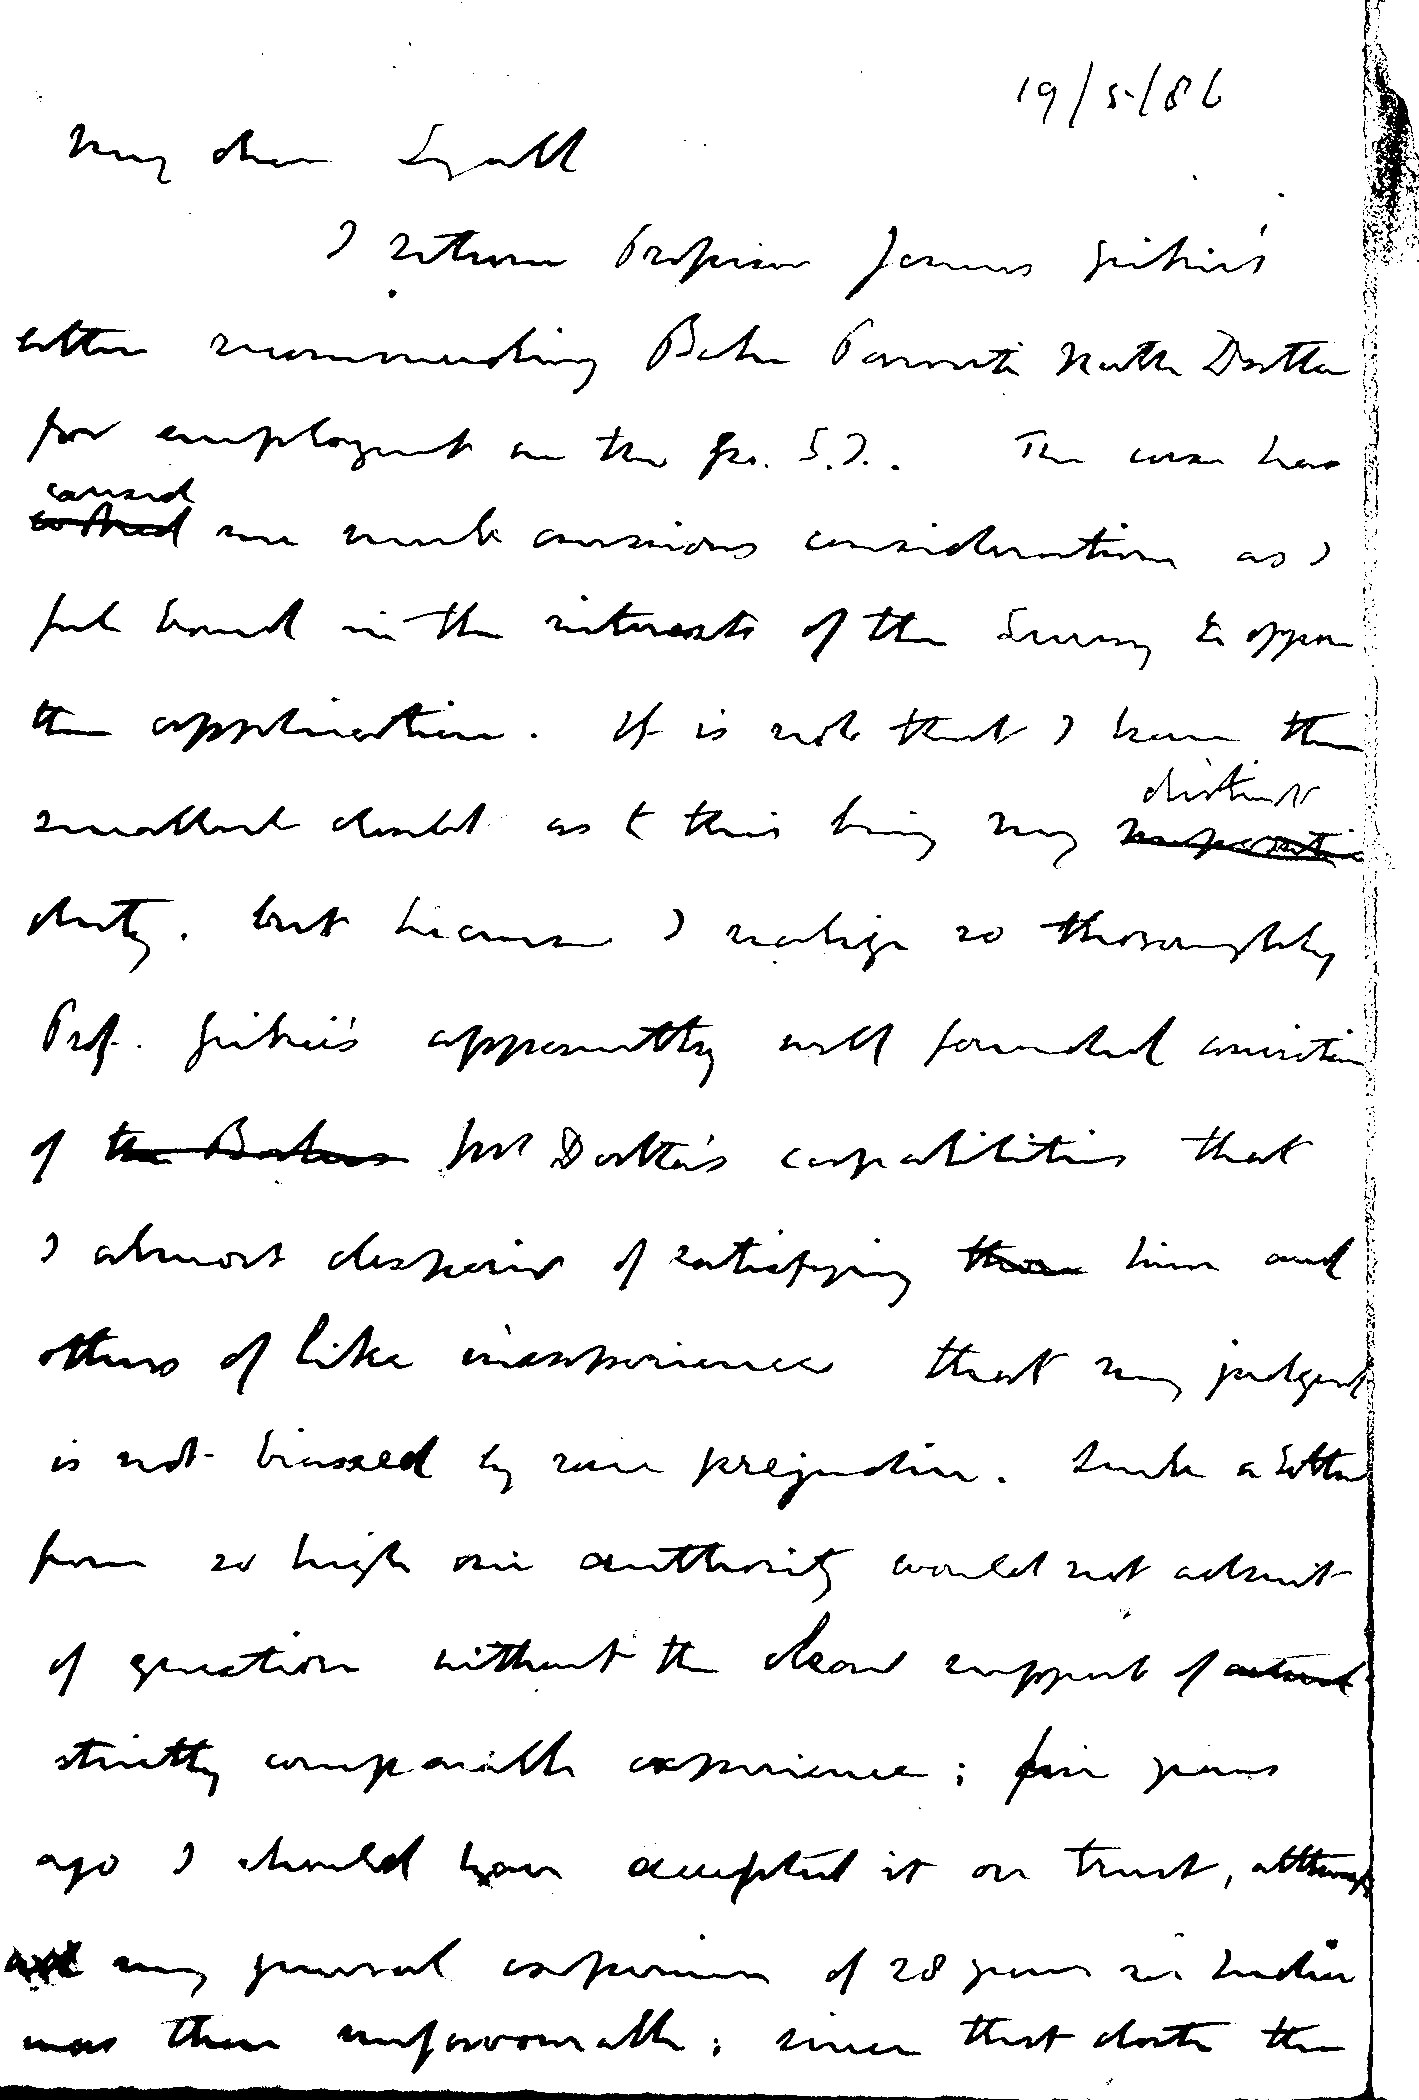 19/5/86
My dear Lyall
I return Professor James Geikie's
letter recommending Babu Pramatha Nath Datta
for employment on the Geo. S. I.. The case has
caused
me much anxious consideration as I
feel bound in the interests of the Survey to oppose
the application. It is not that I have the
distinct
smallest doubt as to this being my
duty. but because I realize so thoroughly
Prof. Geikie's apparently well founded conviction
of the Babus Mr Datta's capabilities that
I almost despair of satisfying them him and
others of like inexperience that my judgment
is not biassed by race prejudice. Such a letter
from so high an authority would not admit
of question without the clear support of actual
strictly comparable experience; five years
ago I should have accepted it on trust, although
my general experience of 28 years in India
was then unfavourable; since that date the